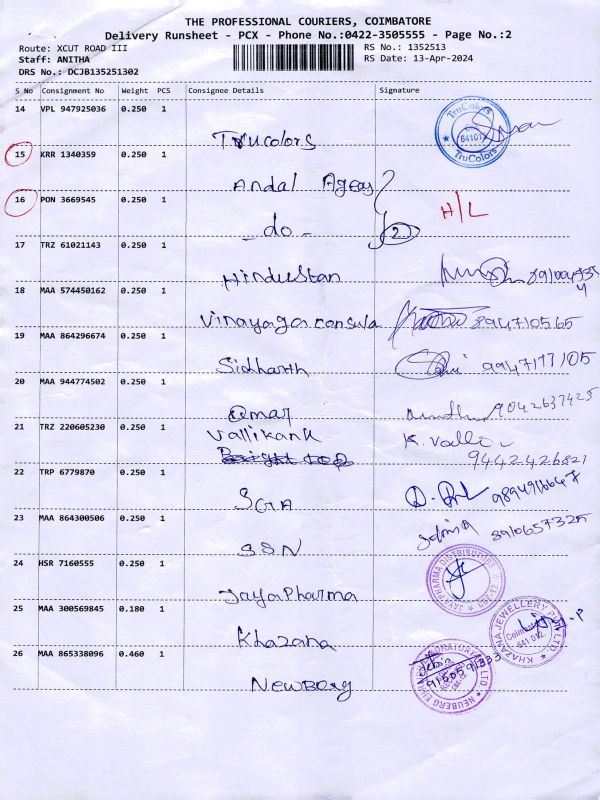 THE PROFESSIONAL COURIERS, COIMBATORE
Delivery Runsheet - PCX - Phone No.:0422-3505555 - Page No.:2
Route: XCUT ROAD III
RS No.: 1352513
Staff: ANITHA
RS Date: 13-Apr-2024
DRS No.: DCJB135251302
S No Consignment No Weight PCS Consignee Details Signature
14 VPL 947925036 0.250 1
Trucolors
TruColors
TruColors
15 KRR 1340359 0.250 1
Andal Agecy
16 PON 3669545 0.250 1
H/L
- do - 2
17 TRZ 61021143 0.250 1
Hindustan
18 MAA 574450162 0.250 1
Vinayaga consula 894710565
19 MAA 864296674 0.250 1
Sidharth 9947177105
20 MAA 944774502 0.250 1
Qmar 9042637425
21 TRZ 220605230 0.250 1
Vallikank K. Valli
9442426821
22 TRP 6779870 0.250 1
SGA
23 MAA 864300506 0.250 1
8910657325
SSN
24 HSR 7160555 0.250 1
JAYA PHARMA DISTRIBUTORS
CBE-12
Jaya Pharma
25 MAA 300569845 0.180 1
KHAZANA JEWELLERY PVT LTD
Coimbatore
641 012
Khazana
26 MAA 865338096 0.460 1
NEUBERG EHRLICH LABORATORY PVT LTD
9160591333
Newberg